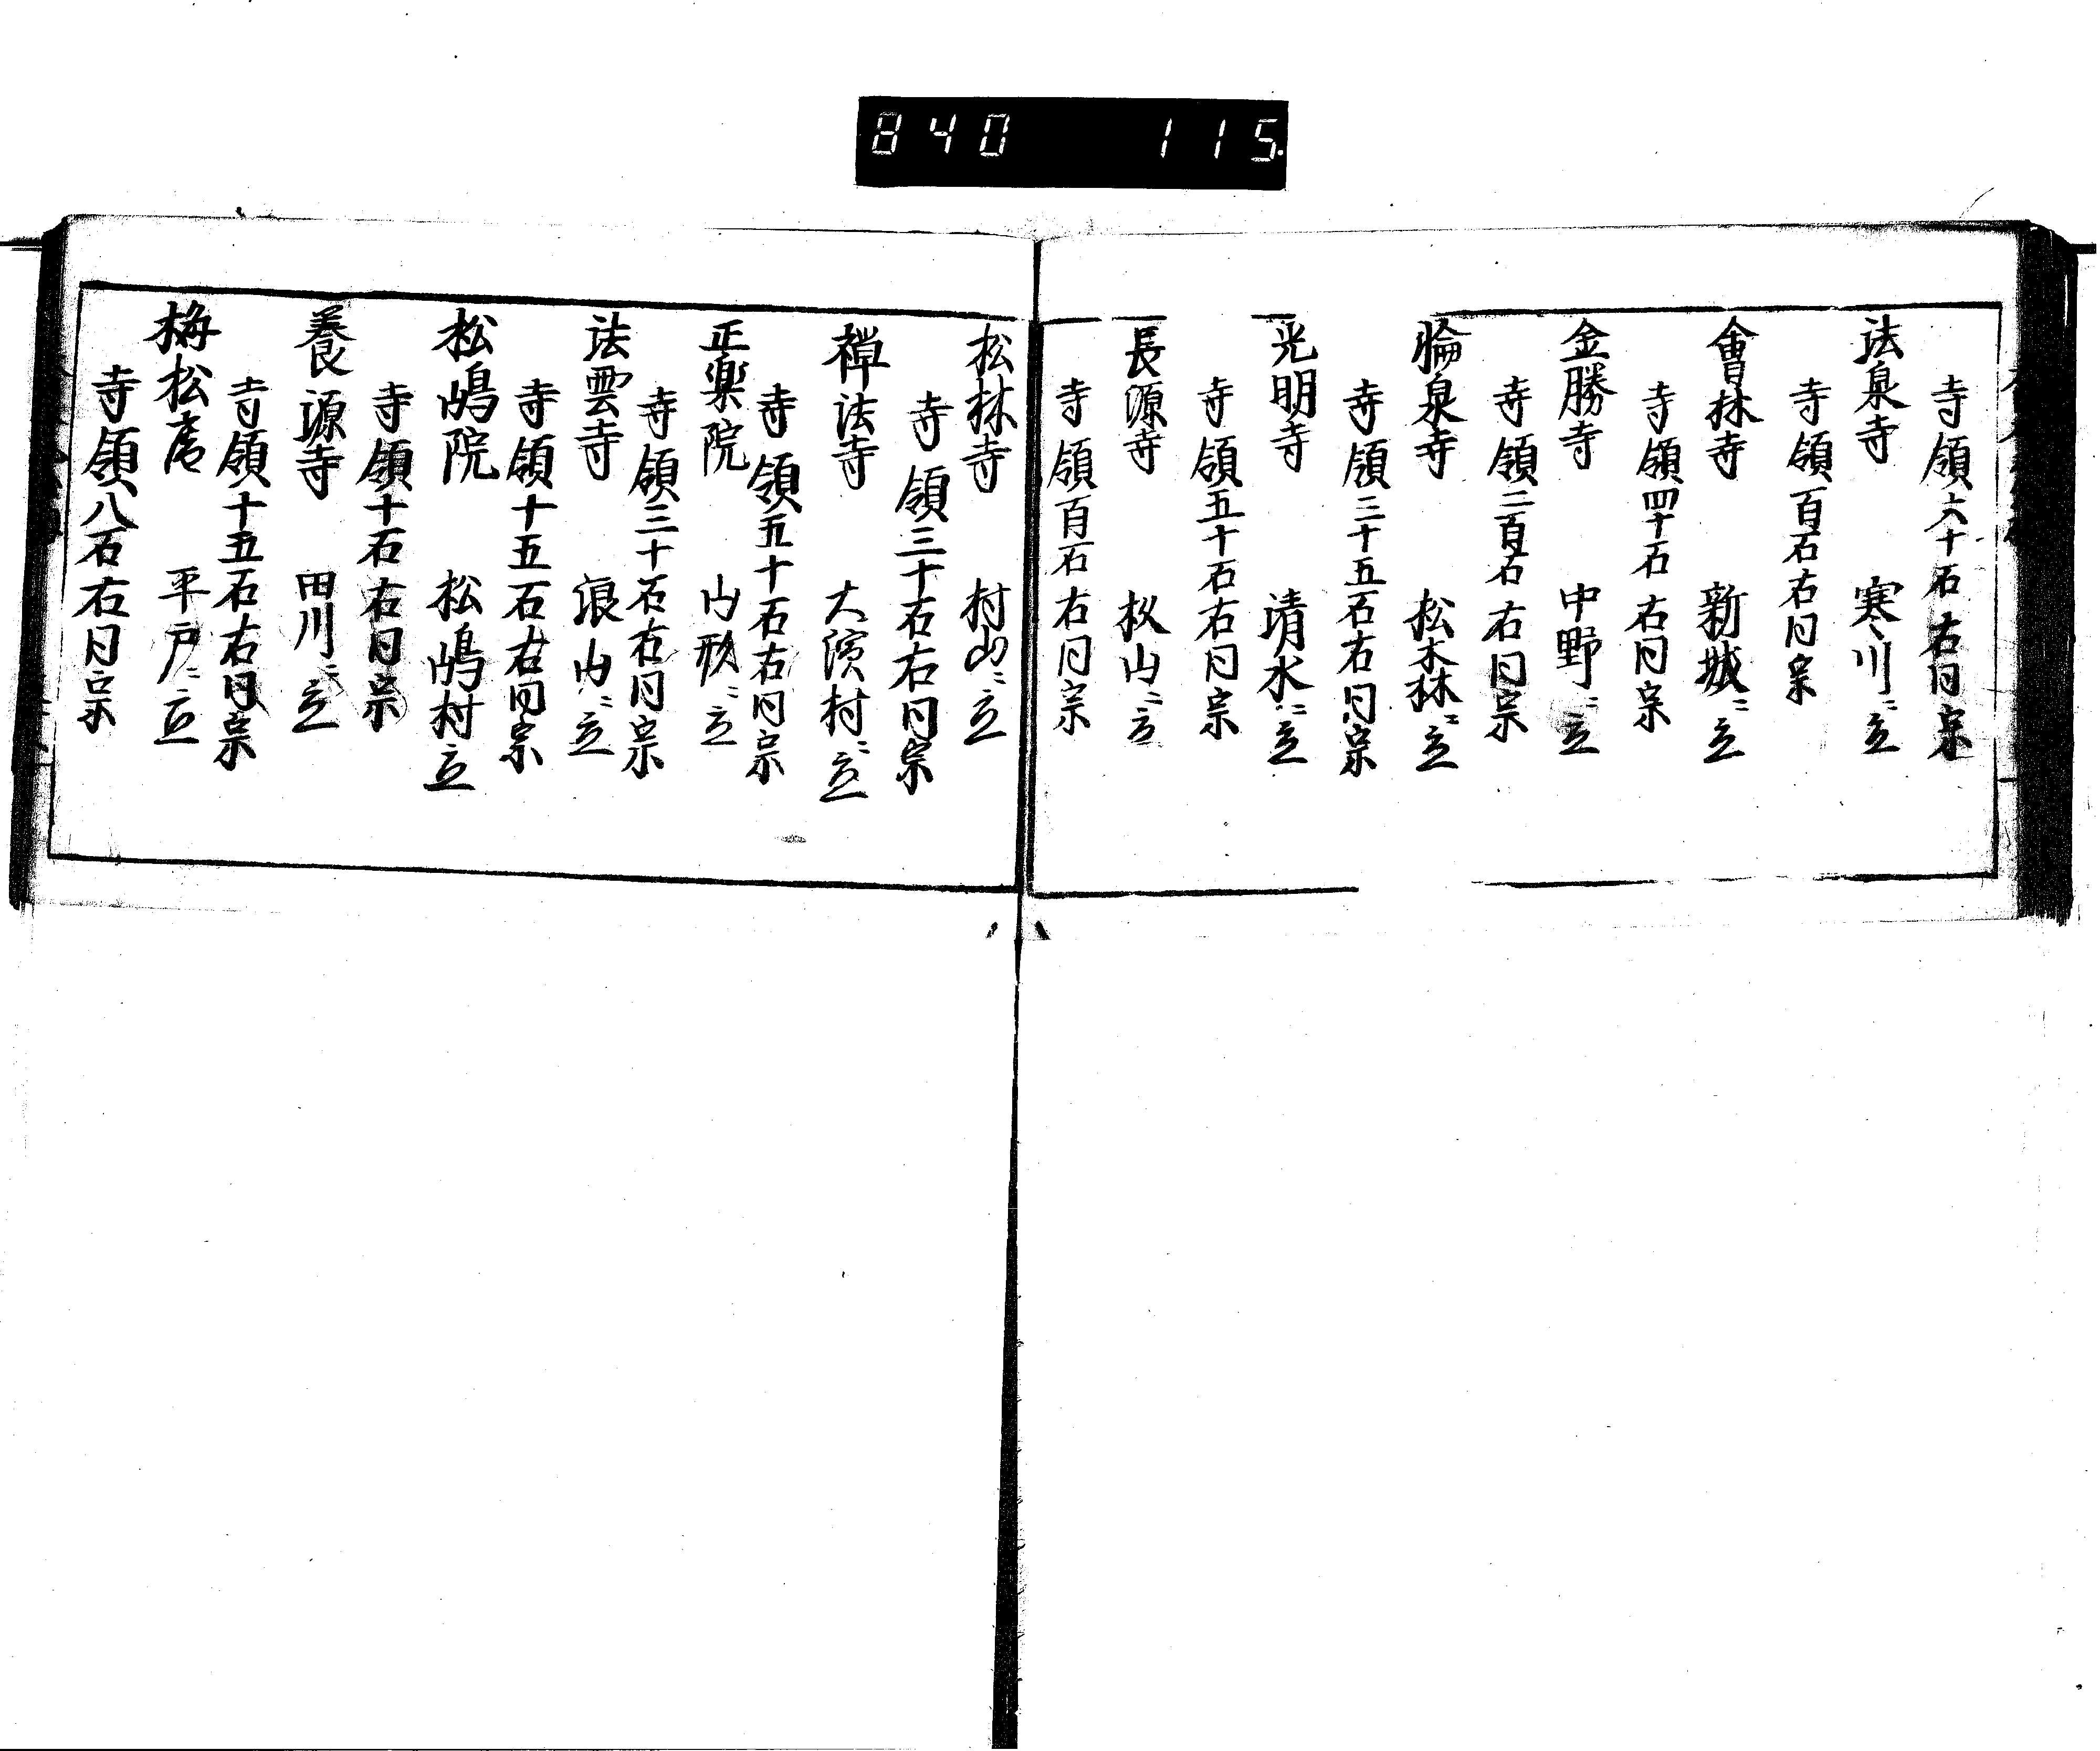 840 115
寺領六十石右同宗
法泉寺 寒川ニ立
寺領百石右同宗
會林寺 新城ニ立
寺領四十石右同宗
金勝寺 中野ニ立
寺領二百石右同宗
泉寺 松森ニ立
寺領三十五石右同宗
光明寺 清水ニ立
寺領五十石右同宗
長源寺 秋山ニ立
寺領百石右同宗
松林寺 村山ニ立
寺領三十石右同宗
禅法寺 大濱村ニ立
寺領五十石右同宗
正楽院 山形ニ立
寺領三十石右同宗
法雲寺 浪山ニ立
寺領十五石右同宗
松嶋院 松嶋村立
寺領十石右同宗
養源寺 田川ニ立
寺領十五石右同宗
梅松庵 平戸ニ立
寺領八石右同宗